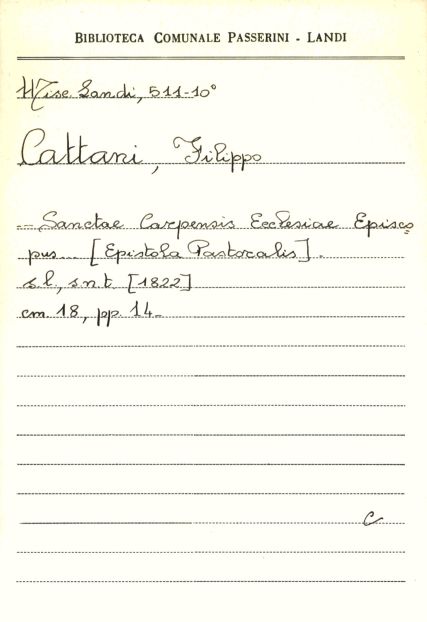 BIBLIOTECA COMUNALE PASSERINI - LANDI
Misc. Landi, 511-10°
Cattani, Filippo
-- Sanctae Carpensis Ecclesiae Episco
pus... [Epistola Pastoralis].
s.l., s.n.t. [1822]
cm. 18, pp. 14-
C